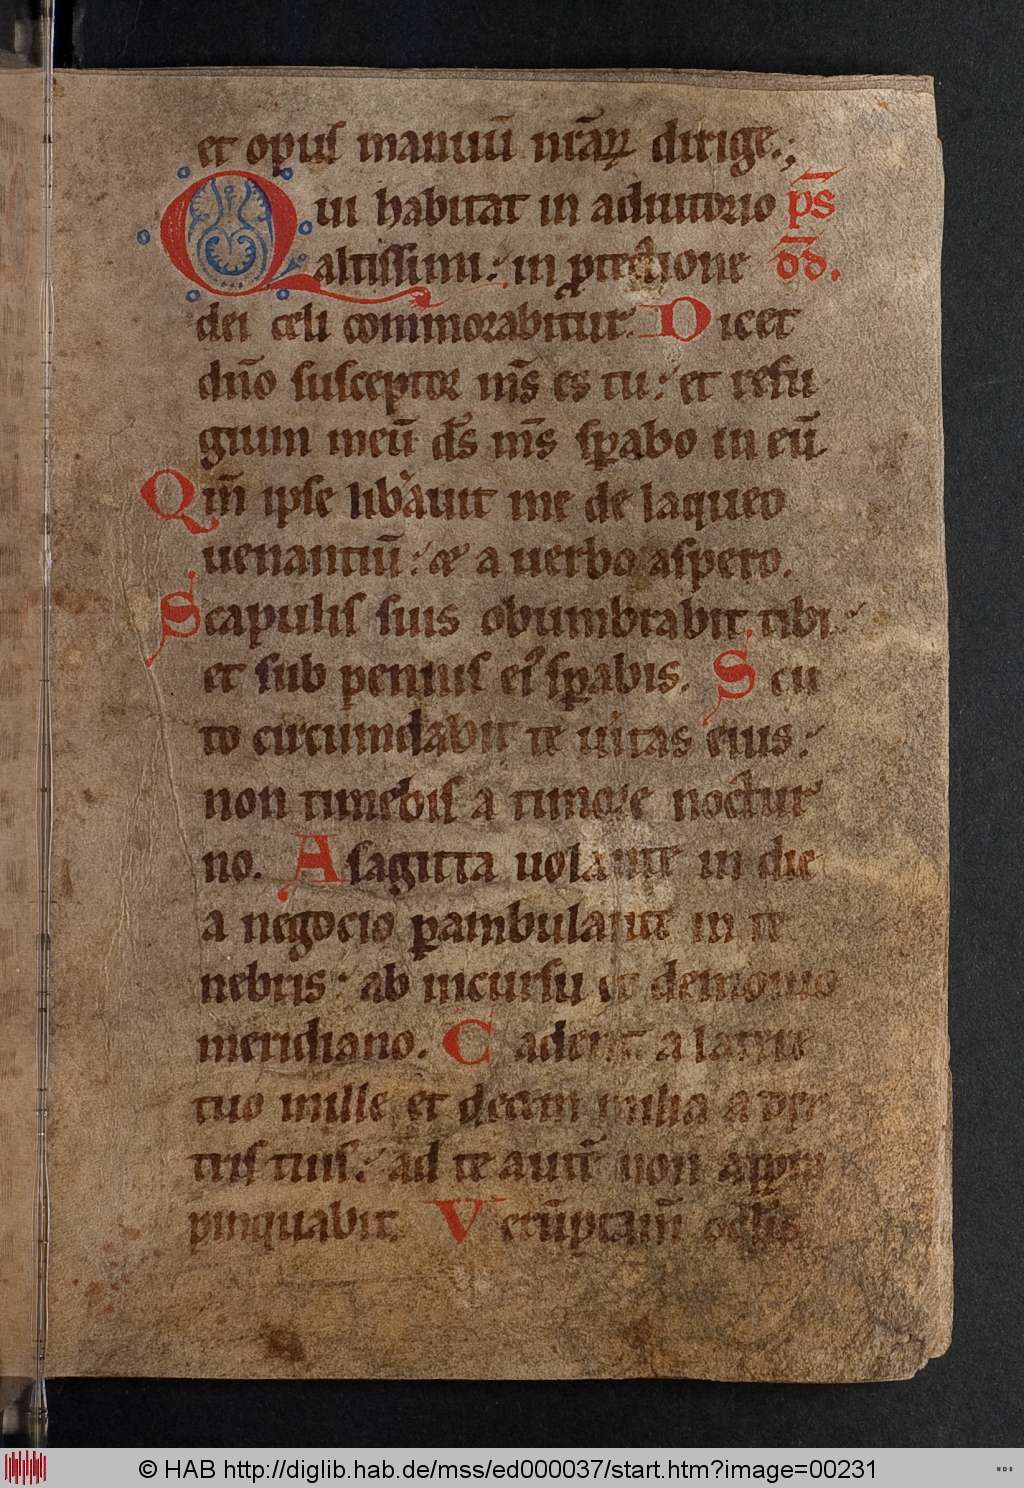 et opus manuū nr̄aꝝ dirige.,
Qui habitat in adiutorio ps̄
altissimi: in ꝓtectione dd̄.
dei celi commorabitur. Dicet
dn̄o susceptor m̄s es tu: et refu
gium meū ds̄ m̄s sꝑabo in eū.
Qm̄ ipse lib̾auit me de laqueo
uenantiū: & a uerbo aspero.
Scapulis suis obumbrabit tibi:
et sub pennis eiꝰ sꝑabis. Scu
to circumdabit te uitas eius:
non timebis a timore noctur
no. A sagitta uolante in die
a negocio ꝑambulante in te
nebris: ab incursu et demonio
meridiano. Cadent a latere
tuo mille et decem milia a dex
tris tuis: ad te aut̄ non appro
pinquabit. Verūptam̄ oclis
© HAB http://diglib.hab.de/mss/ed000037/start.htm?image=00231